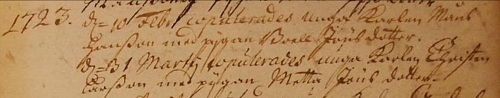 1723. d. 10 Febr copulerades unga Karlen Måns
Hansson med pigan Boel Jöns dotter.
d. 31 Marty copulerades unga Karlen Christen
Larsson med pigan Metta Jöns dotter.